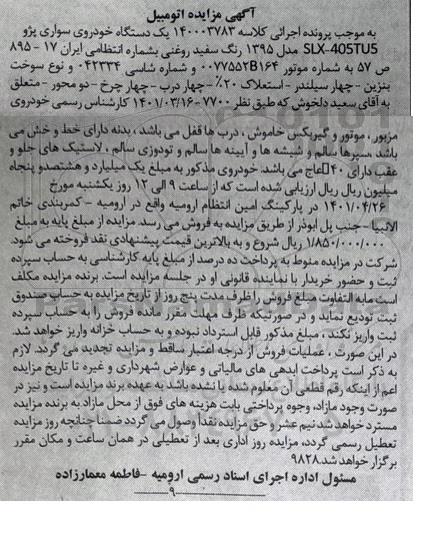 آگهی مزایده اتومبیل
به موجب پرونده اجرائی کلاسه ۱۴۰۰۰۳۷۸۳ یک دستگاه خودروی سواری پژو
SLX-405TU5 مدل ۱۳۹۵ رنگ سفید روغنی بشماره انتظامی ایران ۱۷ - ۸۹۵
ص ۵۷ به شماره موتور ۰۰۷۷۵۵۲B۱۶۴ و شماره شاسی ۰۴۲۳۳۴ و نوع سوخت
بنزین - چهار سیلندر - استعلاک ۲۰٪ - چهار درب - چهار چرخ - دو محور - متعلق
به آقای سعید دلخوش که طبق نظر ۷۷۰۰ - ۱۴۰۱/۰۳/۱۶ کارشناس رسمی خودروی
مزبور ، موتور و گیربکس خاموش ، درب ها قفل می باشد ، بدنه دارای خط و خش می
باشد ،سپرها سالم و شیشه ها و آیینه ها سالم و تودوزی سالم ، لاستیک های جلو و
عقب دارای ۴۰٪عاج می باشد. خودروی مذکور به مبلغ یک میلیارد و هشتصدو پنجاه
میلیون ریال ریال ارزیابی شده است که از ساعت ۹ الی ۱۲ روز یکشنبه مورخ
۱۴۰۱/۰۴/۲۶ در پارکینگ امین انتظام ارومیه واقع در ارومیه - کمربندی خاتم
الانبیا - جنب پل ابوذر از طریق مزایده به فروش می رسد. مزایده از مبلغ پایه به مبلغ
۱/۸۵۰/۰۰۰/۰۰۰ ریال شروع و به بالاترین قیمت پیشنهادی نقد فروخته می شود.
شرکت در مزایده منوط به پرداخت ده درصد از مبلغ پایه کارشناسی به حساب سپرده
ثبت و حضور خریدار یا نماینده قانونی او در جلسه مزایده است. برنده مزایده مکلف
است مابه التفاوت مبلغ فروش را ظرف مدت پنج روز از تاریخ مزایده به حساب صندوق
ثبت تودیع نماید و در صورتیکه ظرف مهلت مقرر مانده فروش را به حساب سپرده
ثبت واریز نکند ، مبلغ مذکور قابل استرداد نبوده و به حساب خزانه واریز خواهد شد.
در این صورت ، عملیات فروش از درجه اعتبار ساقط و مزایده تجدید می گردد. لازم
به ذکر است پرداخت ابدهی های مالیاتی و عوارض شهرداری و غیره تا تاریخ مزایده
اعم از اینکه رقم قطعی آن معلوم شده یا نشده باشد به عهده برند مزایده است و نیز در
صورت وجود مازاد، وجوه پرداختی بابت هزینه های فوق از محل مازاد به برنده مزایده
مسترد خواهد شد نیم عشر و حق مزایده نقدا وصول می گردد ضمنا چنانچه روز مزایده
تعطیل رسمی گردد، مزایده روز اداری بعد از تعطیلی در همان ساعت و مکان مقرر
برگزار خواهد شد.۹۸۲۸
مسئول اداره اجرای اسناد رسمی ارومیه -فاطمه معمارزاده
۹